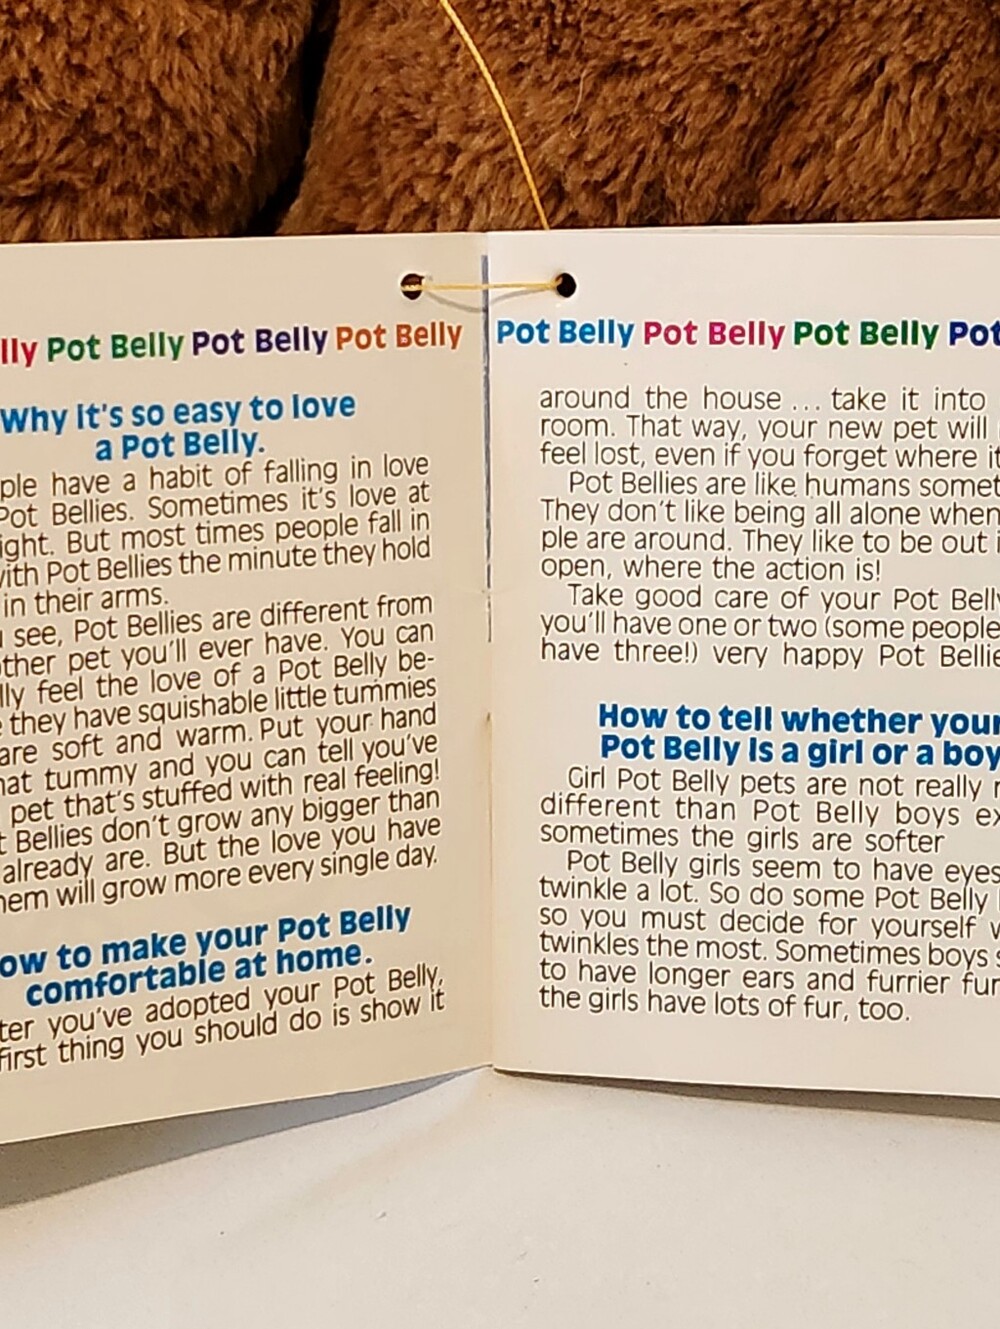 lly Pot Belly Pot Belly Pot Belly
Why it's so easy to love
a Pot Belly.
ple have a habit of falling in love
Pot Bellies. Sometimes it's love at
ight. But most times people fall in
with Pot Bellies the minute they hold
in their arms.
see, Pot Bellies are different from
other pet you'll ever have. You can
lly feel the love of a Pot Belly be-
they have squishable little tummies
are soft and warm. Put your hand
hat tummy and you can tell you've
pet that's stuffed with real feeling!
t Bellies don't grow any bigger than
already are. But the love you have
hem will grow more every single day.
ow to make your Pot Belly
comfortable at home.
ter you've adopted your Pot Belly,
first thing you should do is show it
Pot Belly Pot Belly Pot Belly Pot
around the house ... take it into
room. That way, your new pet will
feel lost, even if you forget where it
Pot Bellies are like humans somet
They don't like being all alone when
ple are around. They like to be out i
open, where the action is!
Take good care of your Pot Belly
you'll have one or two (some people
have three!) very happy Pot Bellie
How to tell whether your
Pot Belly is a girl or a boy
Girl Pot Belly pets are not really
different than Pot Belly boys ex
sometimes the girls are softer
Pot Belly girls seem to have eyes
twinkle a lot. So do some Pot Belly
so you must decide for yourself
twinkles the most. Sometimes boys s
to have longer ears and furrier fur
the girls have lots of fur, too.